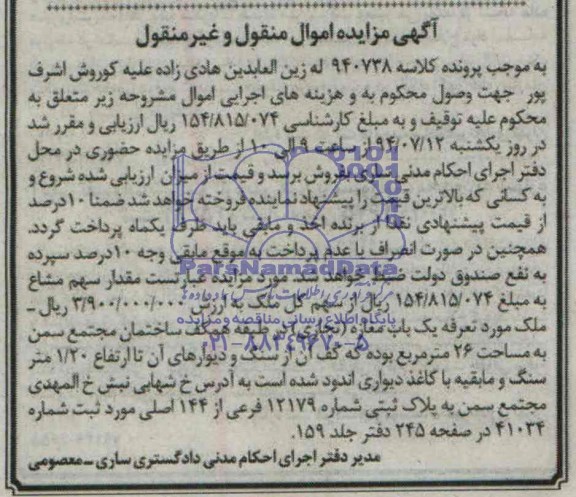 آگهی مزایده اموال منقول و غیر منقول
به موجب پرونده کلاسه ۹۴۰۷۳۸ له زین العابدین هادی زاده علیه کوروش اشرف
پور جهت وصول محکوم به و هزینه های اجرایی اموال مشروحه زیر متعلق به
محکوم علیه توقیف و به مبلغ کارشناسی ۱۵۴/۸۱۵/۰۷۴ ریال ارزیابی و مقرر شد
در روز یکشنبه ۹۴/۰۷/۱۲ از ساعت ۹ الی ۱۰ از طریق مزایده حضوری در محل
دفتر اجرای احکام مدنی ساری بفروش برسد و قیمت از میزان ارزیابی شده شروع و
به کسانی که بالاترین قیمت را پیشنهاد نماینده فروخته خواهد شد ضمنا ۱۰درصد
از قیمت پیشنهادی نقدا از برنده اخذ و مابقی باید ظرف یکماه پرداخت گردد.
همچنین در صورت انصراف یا عدم پرداخت به موقع مابقی وجه ۱۰درصد سپرده
به نفع صندوق دولت ضبط خواهد شد. مورد مزایده عبارتست مقدار سهم مشاع
به مبلغ ۱۵۴/۸۱۵/۰۷۴ ریال از سهم کل ملک به ارزش ۳/۹۰۰/۰۰۰/۰۰۰ ریال ـ
ملک مورد تعرفه یک باب مغازه (تجاری) در طبقه همکف ساختمان مجتمع سمن
به مساحت ۲۶ مترمربع بوده که کف آن از سنگ و دیوارهای آن تا ارتفاع ۱/۲۰ متر
سنگ و مابقیه با کاغذ دیواری اندود شده است به آدرس خ شهابی نبش خ المهدی
مجتمع سمن به پلاک ثبتی شماره ۱۲۱۷۹ فرعی از ۱۴۴ اصلی مورد ثبت شماره
۴۱۰۳۴ در صفحه ۲۴۵ دفتر جلد ۱۵۹.
مدیر دفتر اجرای احکام مدنی دادگستری ساری ـ معصومی
ParsNamadData
پایگاه اطلاع رسانی مناقصه و مزایده
۰۲۱-۸۸۳۴۹۶۷۰-۵